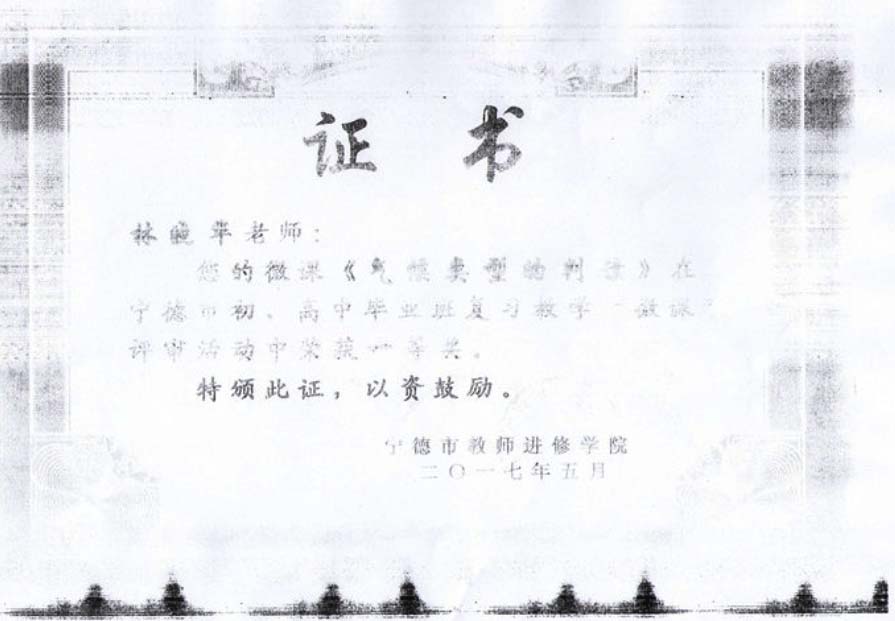 证书
林晓华老师：
您的微课《气候类型的判读》在
宁德市初、高中毕业班复习教学 微课
评审活动中荣获一等奖。
特颁此证，以资鼓励。
宁德市教师进修学院
二〇一七年五月